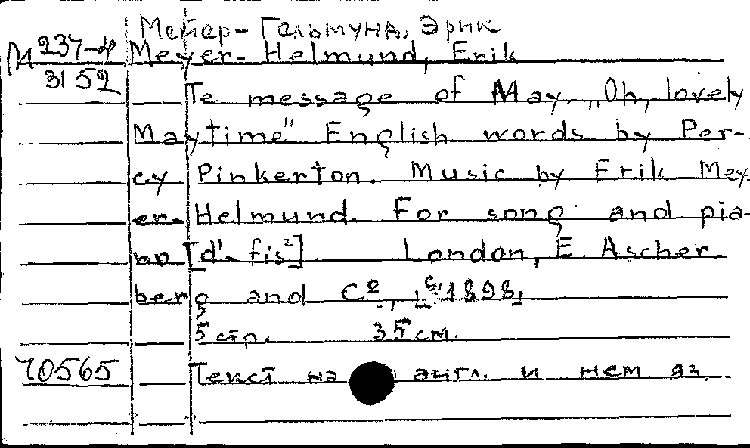 Мейер-Гельмунд, Эрик
М 237-4 Meyer-Helmund, Erik
3152
Te message of May. „Oh, lovely
Maytime" English words by Per-
cy Pinkerton. Music by Erik Mey-
er-Helmund. For song and pia-
no [d¹-fis²] London, E. Ascher-
berg and Cº, c 1898.
5 стр. 35 см.
70565 Текст на англ. и нем яз.